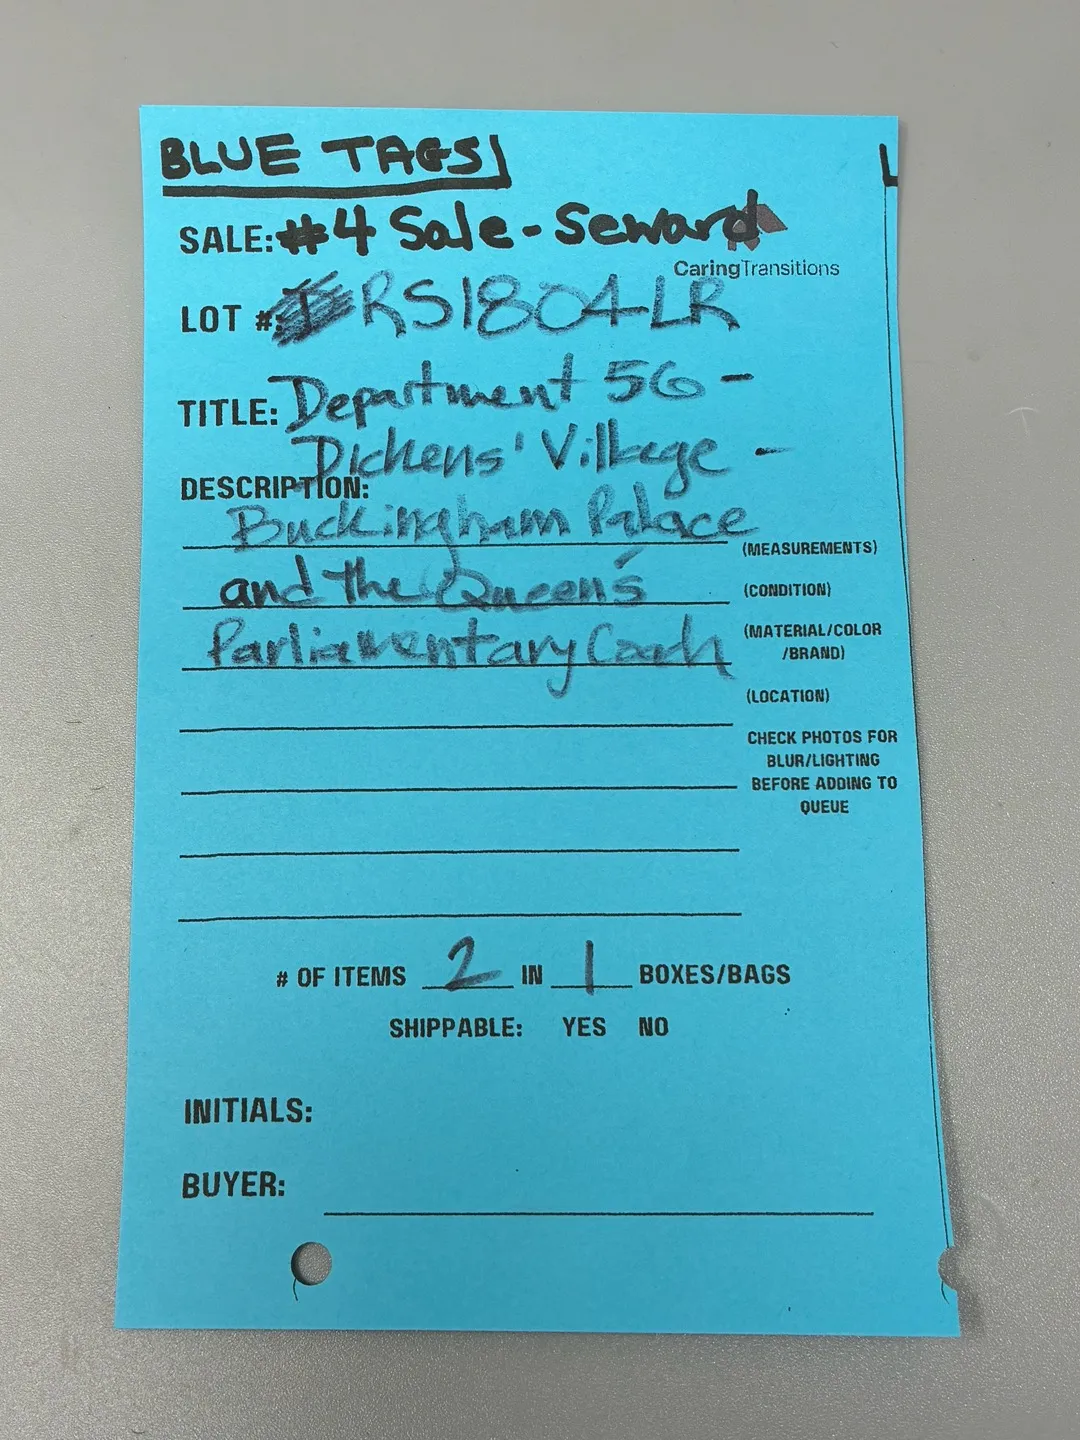 BLUE TAGS
SALE: #4 Sale - Seward
CaringTransitions
LOT #: RS1804-LR
TITLE: Department 56 -
Dickens' Village -
DESCRIPTION:
Buckingham Palace
(MEASUREMENTS)
and the Queen's
(CONDITION)
Parliamentary Coach
(MATERIAL/COLOR
/BRAND)
(LOCATION)
CHECK PHOTOS FOR
BLUR/LIGHTING
BEFORE ADDING TO
QUEUE
# OF ITEMS 2 IN 1 BOXES/BAGS
SHIPPABLE: YES NO
INITIALS:
BUYER: